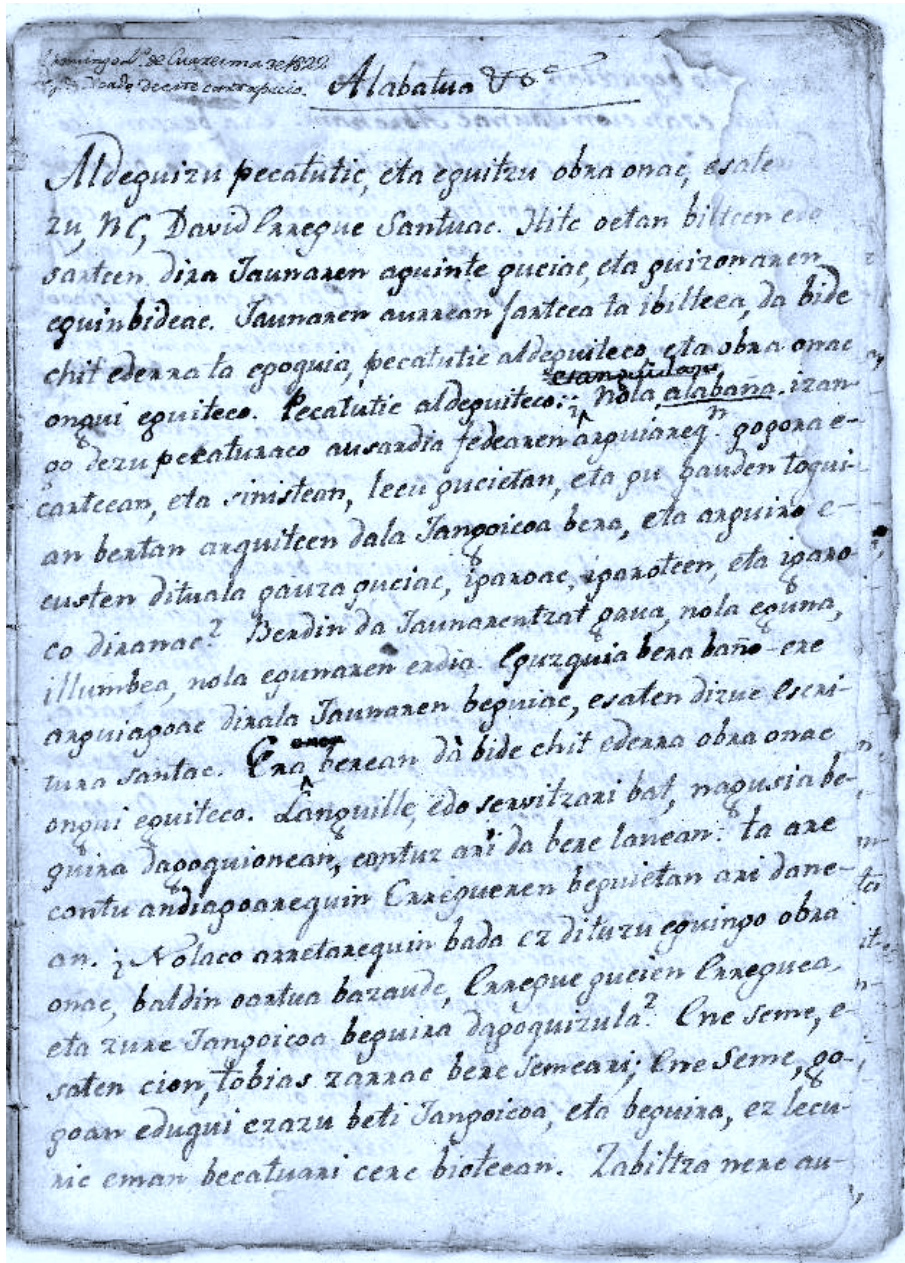 Domingo 1º de Cuaresma de 1820.
Alabatua &ª
Aldeguizu pecatutic, eta eguitzu obra onac, esaten
zu, NC, David Erregue Santuac. Hitc oetan biltcen edo
sartcen dira Jaunaren aguinte guciac, eta guizonaren
eguinbideac. Jaunaren aurrean sartcea ta ibiltcea, da bide
chit ederra ta egoquia, pecatutic aldeguiteco, eta obra onac
ongui eguiteco. Pecatutic aldeguiteco: ¿Nola alabaña izan-
go dezu pecaturaco ausardia fedearen arguiareqn. gogora e-
cartcean, eta sinistean, lecu gucietan, eta gu gauden togui-
an bertan arquitcen dala Jangoicoa bera, eta arguiro e-
custen dituala gauza guciac, igaroac, igarotcen, eta igaro-
co diranac? Berdin da Jaunarentzat gaua, nola eguna,
illumbea, nola egunaren erdia. Eguzquia bera baño ere
arguiagoac dirala Jaunaren beguiac, esaten dizue Escri-
tura santac. Era berean dà bide chit ederra obra onac
ongui eguiteco. Languille, edo servitzari bat, nagusia be-
guira dagoquionean, contuz ari da bere lanean: ta are
contu andiagoarequin Erregueren beguietan ari dane-
an. ¿Nolaco arretarequin bada ez dituzu eguingo obra
onac, baldin oartua bazaude, Erregue gucien Erreguea,
eta zure Jangoicoa beguira dagoquizula? Ene seme, e-
saten cion, tobias zarrac bere semeari; Ene Seme, go-
goan edugui ezazu beti Jangoicoa, eta beguira, ez lecu-
ric eman becatuari cere biotcean. Zabiltza nere au-